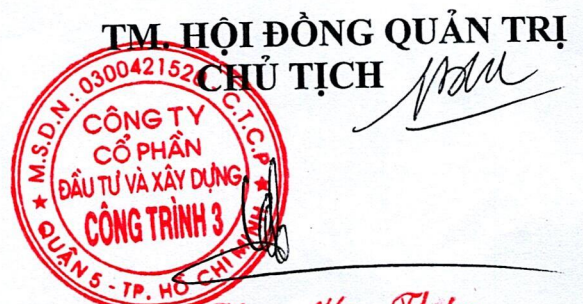 TM. HỘI ĐỒNG QUẢN TRỊ
CHỦ TỊCH
M.S.D.N: 0300421520 C.T.C.P
CÔNG TY
CỔ PHẦN
ĐẦU TƯ VÀ XÂY DỰNG
CÔNG TRÌNH 3
QUẬN 5 - TP. HỒ CHÍ MINH